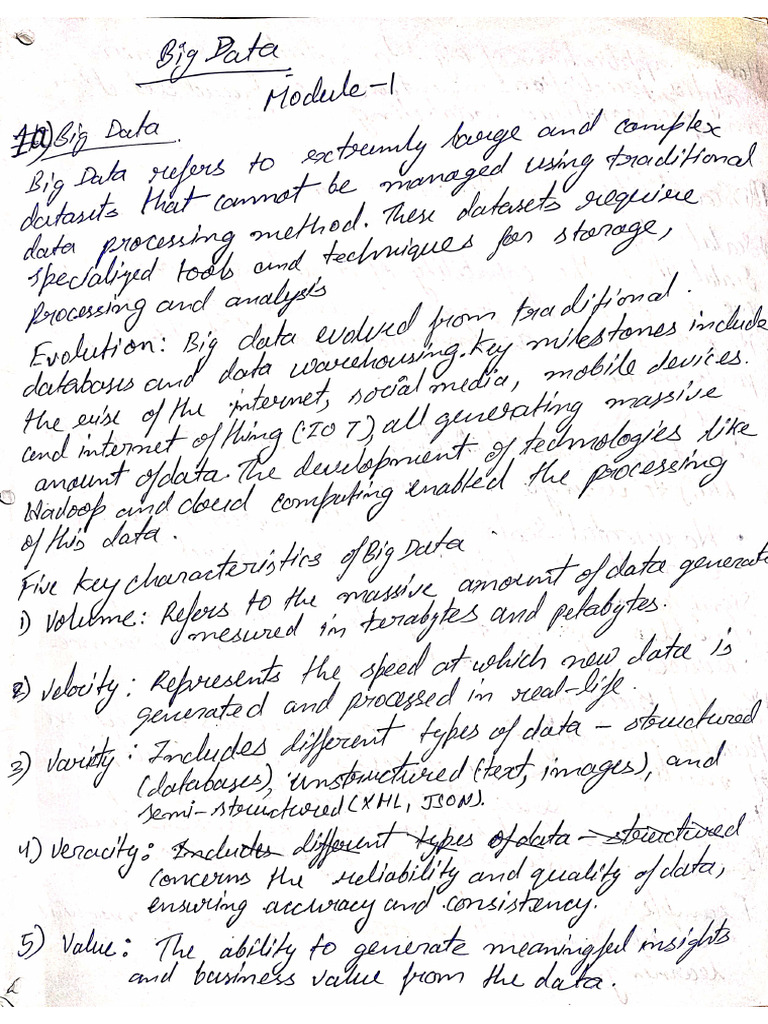 Big Data
Module-1
1a) Big Data
Big Data refers to extremly large and complex
datasets that cannot be managed using traditional
data processing method. These datasets require
specialized tools and techniques for storage,
Processing and analysis
Evolution: Big data evolved from traditional.
databases and data warehousing. Key milestones include
the rise of the internet, social media, mobile devices.
and internet of thing (IOT), all generating massive
amount of data. The development of technologies like
Hadoop and cloud computing enabled the processing
of this data.
Five key characteristics of Big Data
1) Volume: Refers to the massive amount of data generate
mesured in terabytes and petabytes.
2) Velocity: Represents the speed at which new data is
generated and processed in real-life.
3) Variety: Includes different types of data - structured
(databases), unstructured (text, images), and
semi-structured (XML, JSON).
4) Veracity: Includes different types of data - structured
concerns the reliability and quality of data,
ensuring accuracy and consistency.
5) Value: The ability to generate meaningful insights
and business value from the data.